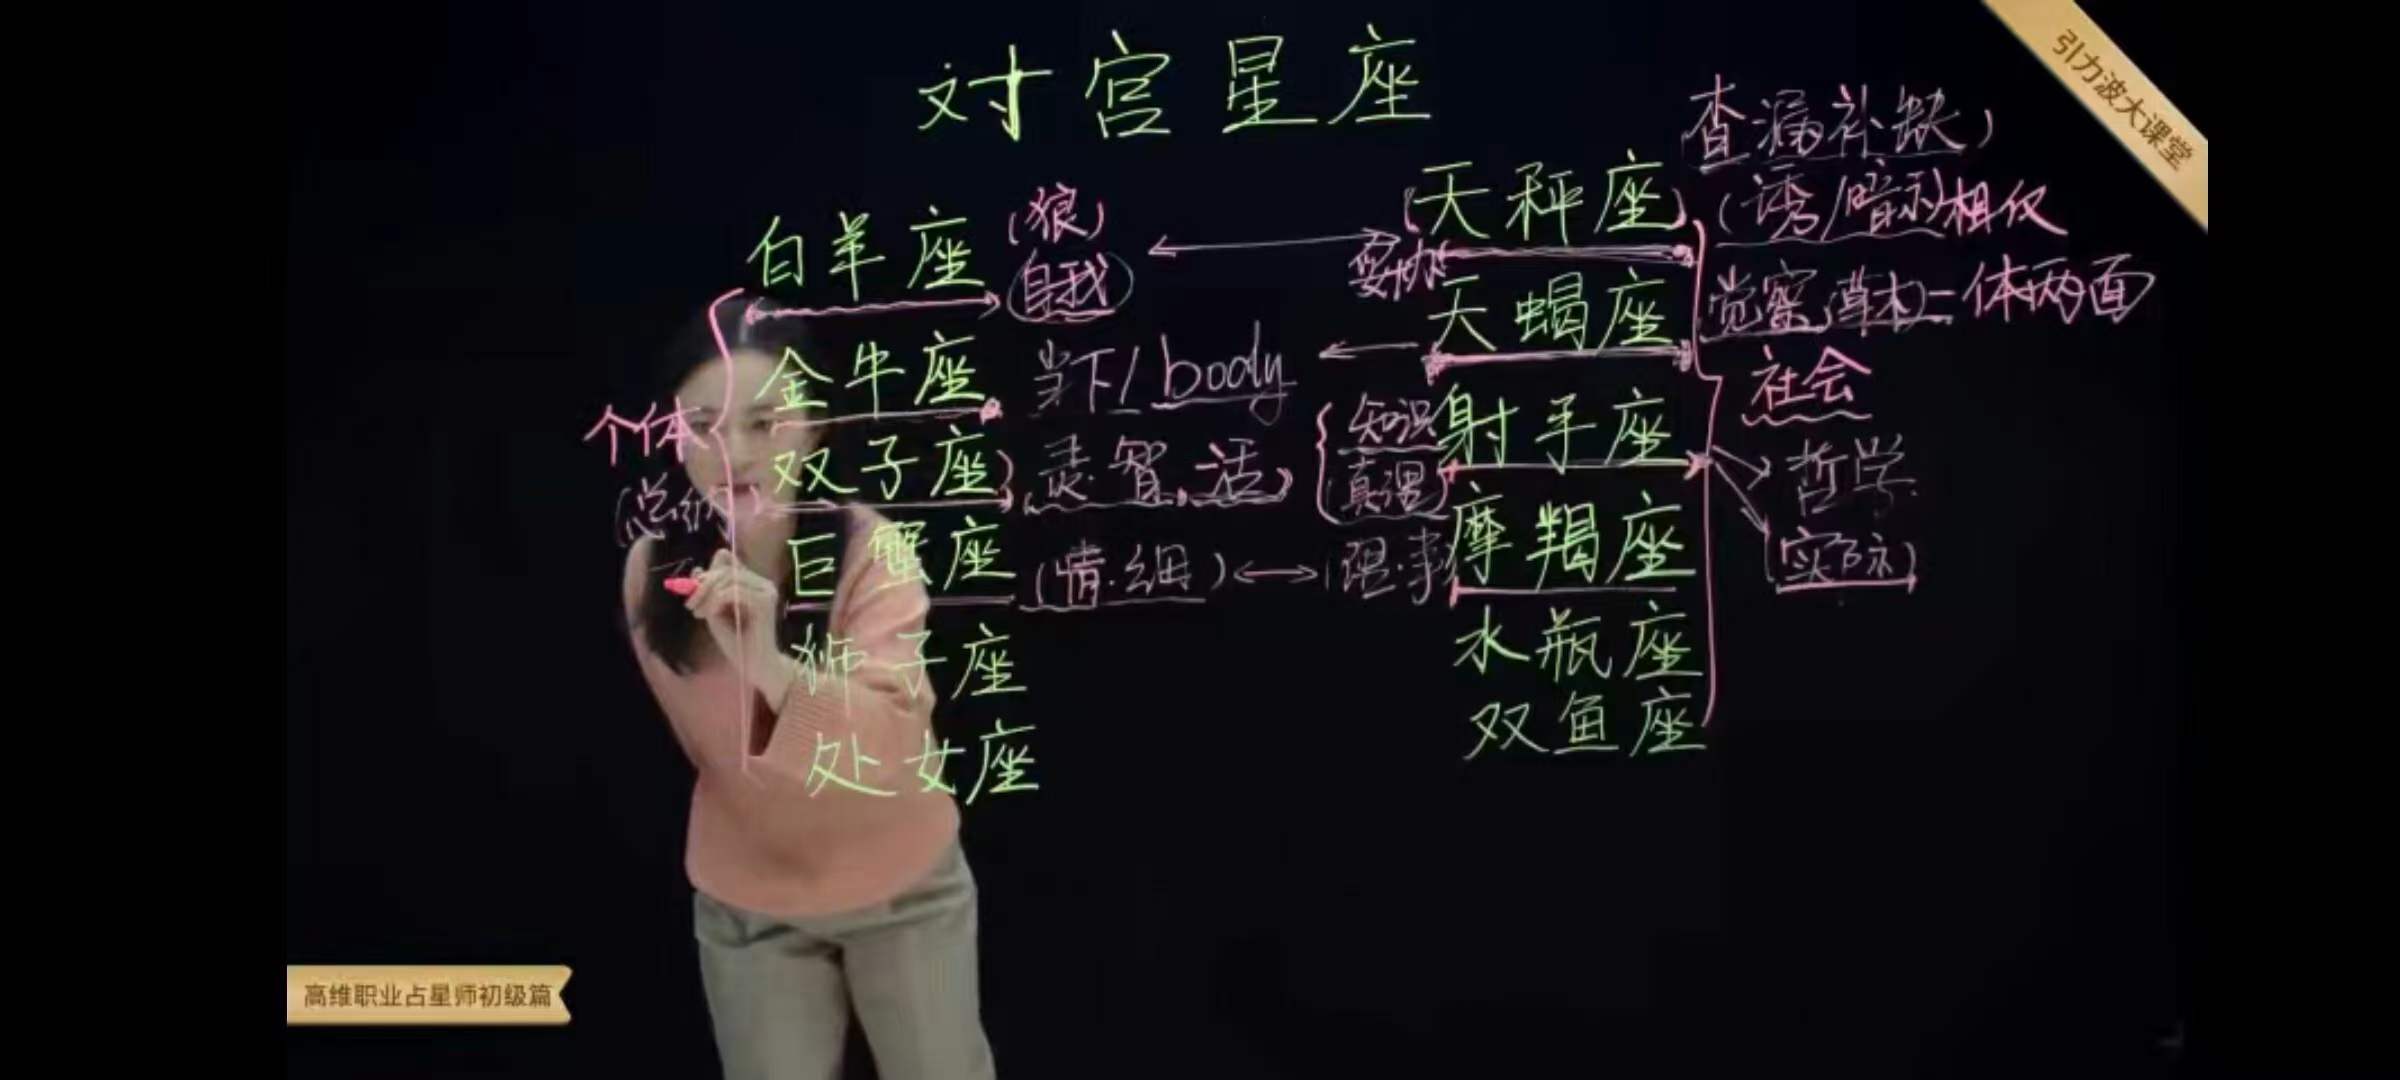 对宫星座
引力波大课堂
查漏补缺)
白羊座 (狼) 自我
(天秤座) 妥协
(诱/暗示)相仪
觉察(草木)一体两面
金牛座 当下/body
天蝎座
社会
个体
双子座 灵.智.活
知识
射手座
哲学
巨蟹座 (情.细)
摩羯座
(实际)
狮子座
水瓶座
处女座
双鱼座
高维职业占星师初级篇